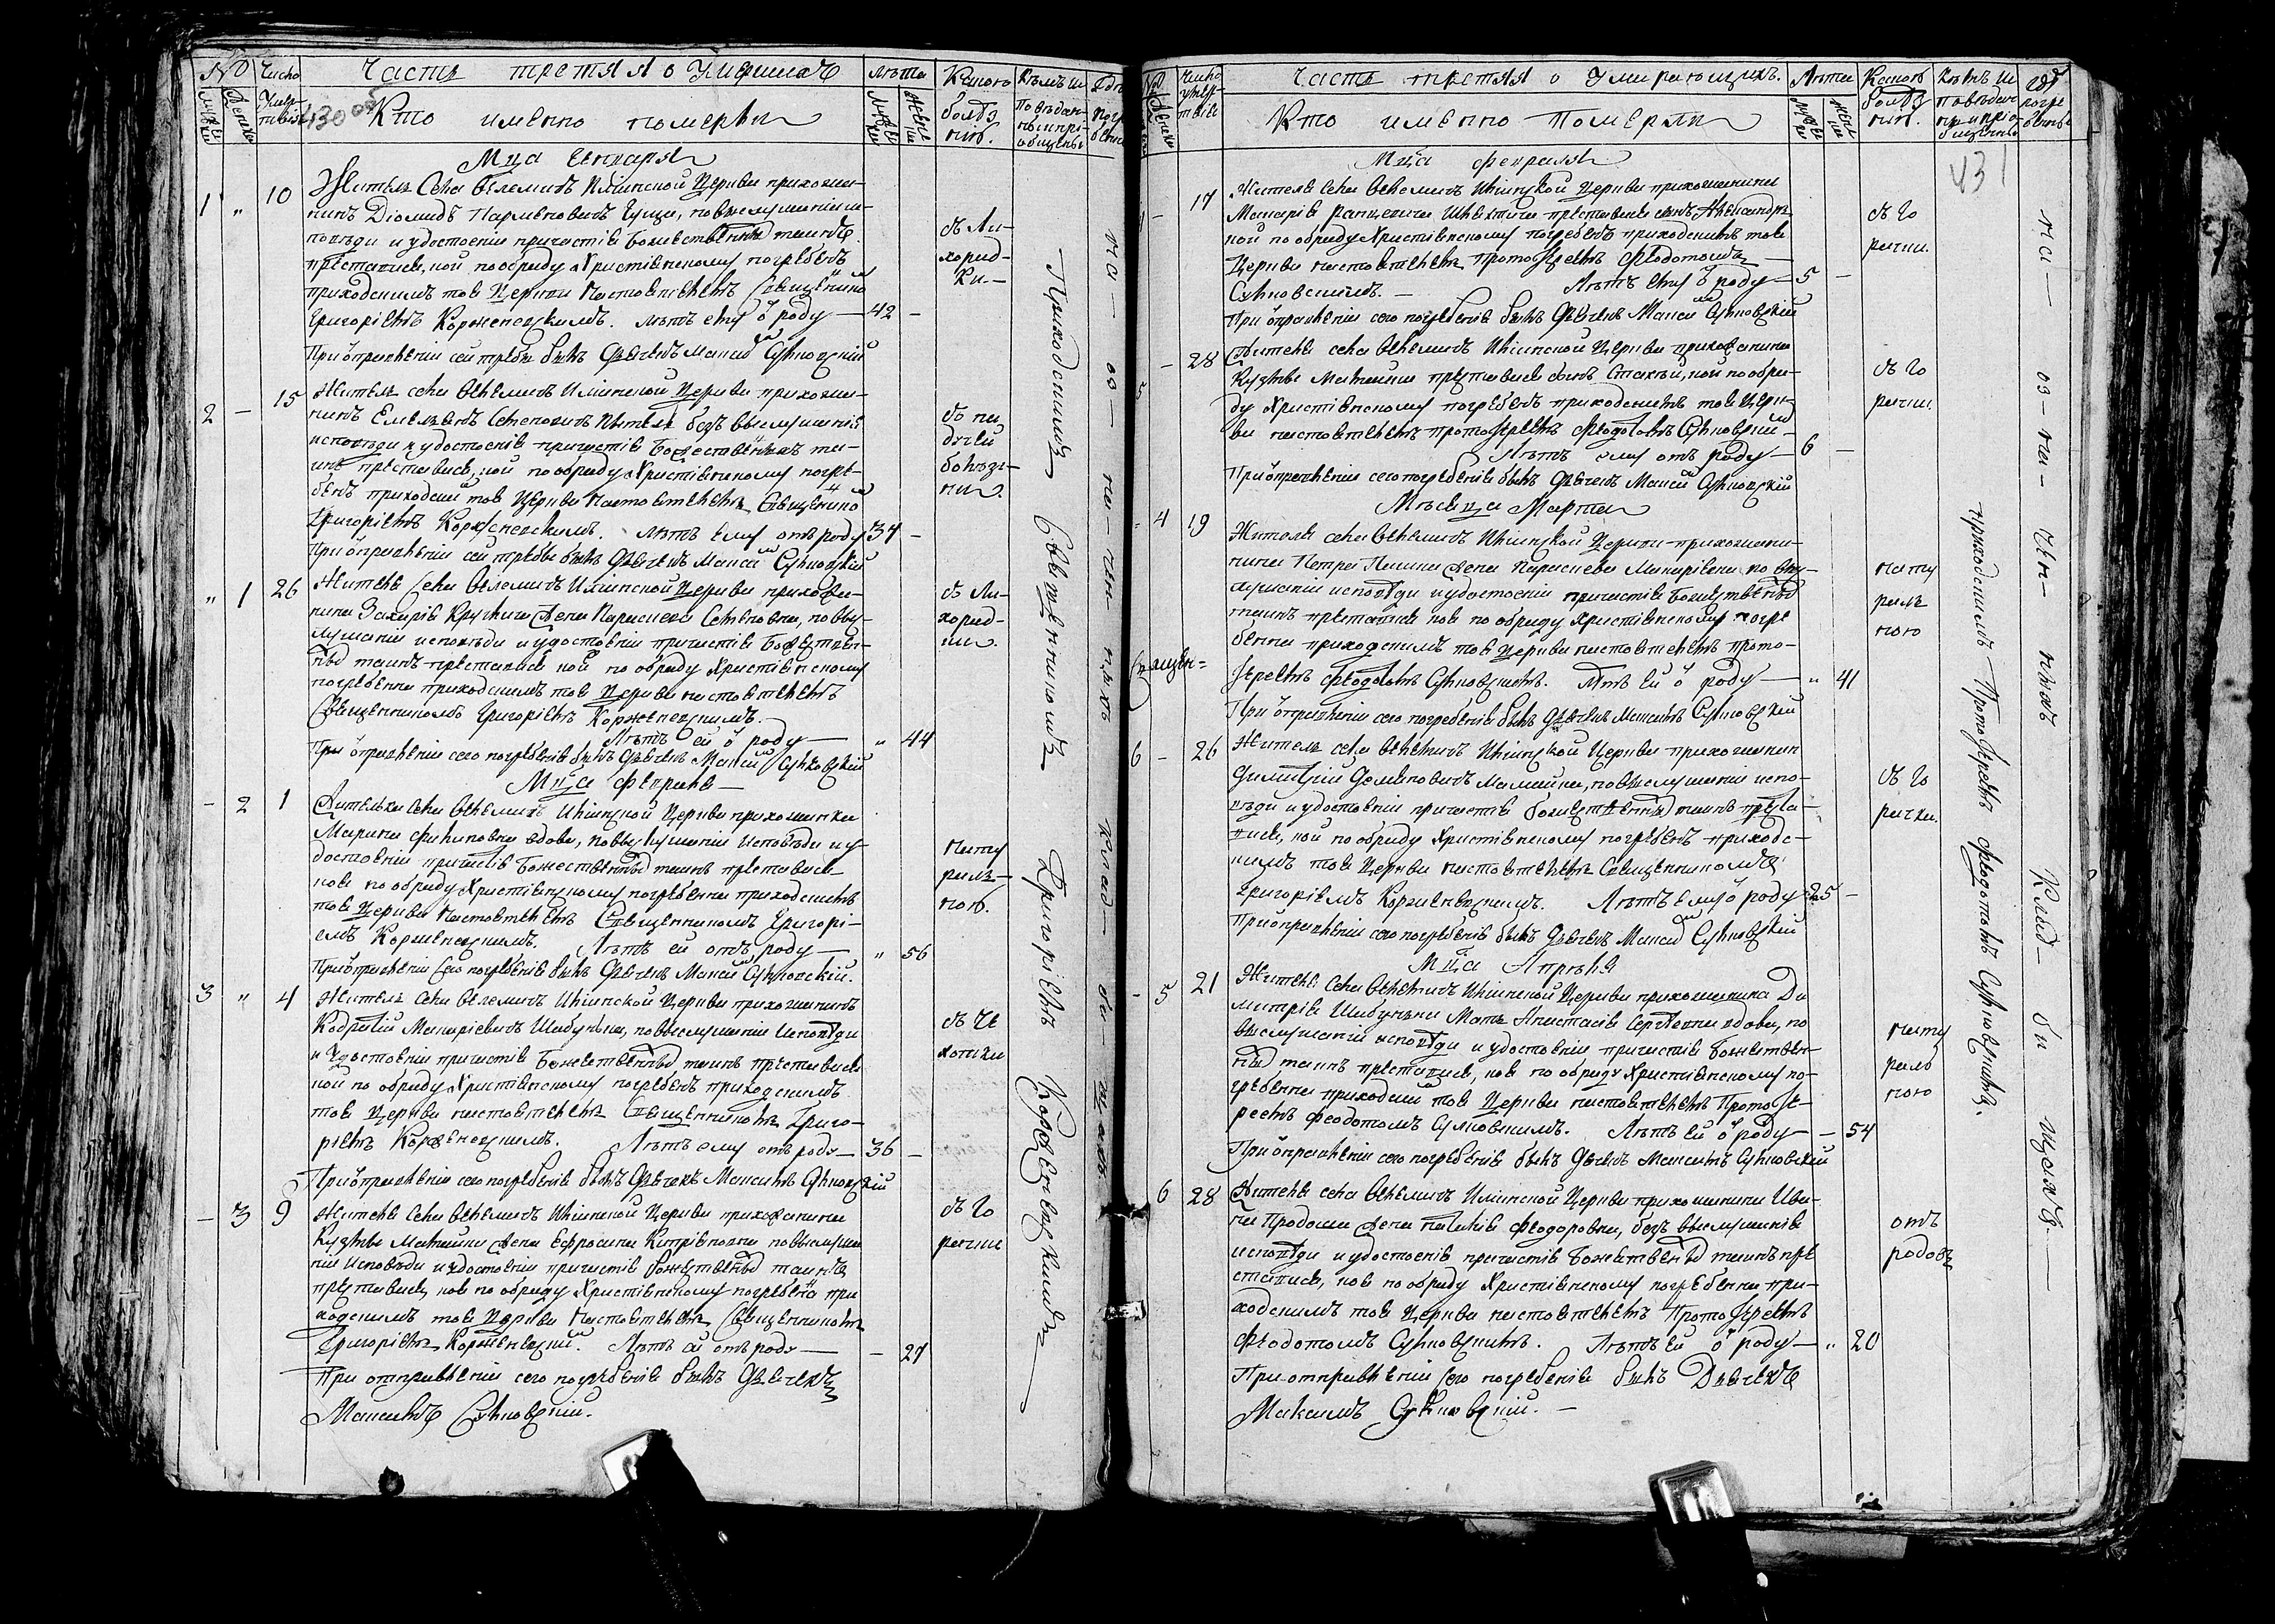 № Число Часть третяя о умершихъ Лѣта Какою Кѣмъ и Гдѣ
Кто именно померли
болѣз
нію.
Мца Генуаря
1 " 10 Житель Села Велемичъ Илiинской Церкви прихожа-
нинъ Діомидъ Парменовичъ по выслушаніи и-
повѣди и удостоеніи причастія Божественныхъ таинъ
преставися, кой по обряду Христіянскому погребенъ
приходскимъ тоя Церкви Настоятелемъ Священико
Григоріемъ Корженевскимъ. Лѣтъ ему ѿ роду — 42 —
съ Ли-
хорад-
ки.—
При ѿправленіи сей требы былъ Дьячекъ Максимъ Сулковскій
2 — 15 Житель села Велемичъ Илiинской Церкви прихожа-
нинъ Емельянъ Степановичъ безъ выслушанія
исповѣди и удостоенія причастія Божественныхъ та-
инъ преставися, кой по обряду Христіянскому погре-
бенъ приходски тоя Церкви Настоятелемъ Священико
Григоріемъ Корженевскимъ. Лѣтъ ему отъ роду 34 —
съ па
дучей
болѣз-
ни.
При ѿправленіи сей требы былъ Дьячекъ Максимъ Сулковскій
" 1 26 Жителя Села Велемичъ Илiинской Церкви прихожа-
нина Захарія жена Параскева Степановна, по выс-
лушаніи исповѣди и удостоеніи причастія Божествен-
ныхъ таинъ преставися коя по обряду Христіянскому
погребенна приходскимъ тоя Церкви настоятелемъ
Священникомъ Григоріемъ Корженевскимъ.
Лѣтъ ей ѿ роду — " 44
съ Ли-
хорад-
ки.
При ѿправленіи сего погребенія былъ Дьячекъ Максимъ Сулковскій
Мца Февраля —
— 2 1 Жителька села Велемичъ Илiинской Церкви прихожанка
Марина Филиповна вдова, по выслушаніи Исповѣди и у-
достоеніи причастія Божественныхъ таинъ преставися
коя по обряду Христіянскому погребенна приходскимъ
тоя Церкви Настоятелемъ Священникомъ Григорі-
емъ Корженевскимъ. Лѣтъ ей отъ роду — " 56
нату
раль-
ною.
При ѿправленіи сего погребенія былъ Дьячекъ Максимъ Сулковскій.
3 " 4 Житель Села Велемичъ Илiинской Церкви прихожанинъ
Кодратій Макаріевичъ по выслушаніи Исповѣди
и Удостоеніи причастія Божественныхъ таинъ преставися
кой по обряду Христіянскому погребенъ приходскимъ
тоя Церкви настоятелемъ Священникомъ Григо-
ріемъ Корженевскимъ. Лѣтъ ему отъ роду — 36 —
съ Че
хотки
При ѿправленіи сего погребенія былъ Дьячекъ Максимъ Сулковскій
— 3 9 Жителя Села Велемичъ Илiинской Церкви прихожанина
Кузьмы жена Ефросинія по выслуша
ніи Исповѣди и удостоеніи причастія Божественныхъ таинъ
преставися, коя по обряду Христіянскому погребена при
ходскимъ тоя Церкви Настоятелемъ Священникомъ
Григоріемъ Корженевски. Лѣтъ ей отъ роду — — 27
съ Го
рячки
При отправленіи сего погребенія былъ Дьячекъ
Максимъ Сулковскій.
Приходскимъ Священникомъ Григоріемъ Корженевскимъ
Часть третяя о Умирающихъ. Лѣта Какою
Кто именно Померли
болѣз
нію.
43
Мца Февраля
— 17 Жителя Села Велемичъ Илiинской Церкви прихожанина
Макарія преставися сынъ Александръ
кой по обряду Христіянскому погребенъ приходскимъ тоя
Церкви настоятелемъ Протоіереемъ Феодотомъ
Сулковскимъ. — Лѣтъ ему ѿ роду — 5 —
съ Го
рячки.
При ѿправленіи сего погребенія былъ Дьячекъ Максимъ Сулковскій
5 — 28 Жителя села Велемичъ Илiинской Церкви прихожанина
Кузьмы преставися сынъ кой по обря-
ду Христіянскому погребенъ приходскимъ тоя Церк-
ви настоятелемъ протоіереемъ Феодотомъ Сулковски
Лѣтъ ему отъ роду — 6 —
съ Го
рячки.
При ѿправленіи сего погребенія былъ Дьячекъ Максимъ Сулковскій
Мѣсяца Марта
- 4 19 Жителя села Велемичъ Илiинской Церкви прихожа-
нина Петра жена Параскева Макаріевна по выс-
лушаніи исповѣди и удостоеніи причастія Божественныхъ
таинъ преставися коя по обряду Христіянскому погре
бенна приходскимъ тоя Церкви настоятелемъ Прото-
іереемъ Феодотомъ Сулковскимъ. Лѣтъ ей ѿ роду — " 41
нату
раль
ною
При ѿправленіи сего погребенія былъ Дьячекъ Максимъ Сулковскій
6 — 26 Житель села Велемичъ Илiинской Церкви прихожанин
Димитрій по выслушаніи испо-
вѣди и удостоеніи причастія Божественныхъ таинъ преста-
вися, кой по обряду Христіянскому погребенъ приходс-
кимъ тоя Церкви настоятелемъ Священникомъ
Григоріемъ Корженевскимъ. Лѣтъ ему ѿ роду — 25 —
съ Го
рячки.
При ѿправленіи сего погребенія былъ Дьячекъ Максимъ Сулковскій
Мца Апрѣля
- 5 21 Жителя Села Велемичъ Илiинской Церкви прихожанина Ди
митрія Мать Анастасія Сергѣевна вдова, по
выслушаніи исповѣди и удостоеніи причастія Божествен-
ныхъ таинъ преставися, коя по обряду Христіянскому по-
гребенна приходски тоя Церкви настоятелемъ Протоіе-
реемъ Феодотомъ Сулковскимъ. Лѣтъ ей ѿ роду — — 54
нату
раль
ною
При ѿправленіи сего погребенія былъ Дьячекъ Максимъ Сулковскій
6 28 Жителя села Велемичъ Илiинской Церкви прихожанина Ива-
на жена Наталія Феодоровна, безъ выслушанія
исповѣди и удостоенія причастія Божественныхъ таинъ пре
ставися, коя по обряду Христіянскому погребенна при-
ходскимъ тоя Церкви настоятелемъ Протоіереемъ
Феодотомъ Сулковскимъ. Лѣтъ ей ѿ роду — " 20
отъ
родовъ
При отправленіи сего погребенія былъ Дьячекъ
Максимъ Сулковскій. —
Приходскимъ Протоіереемъ Феодотомъ Сулковскимъ.